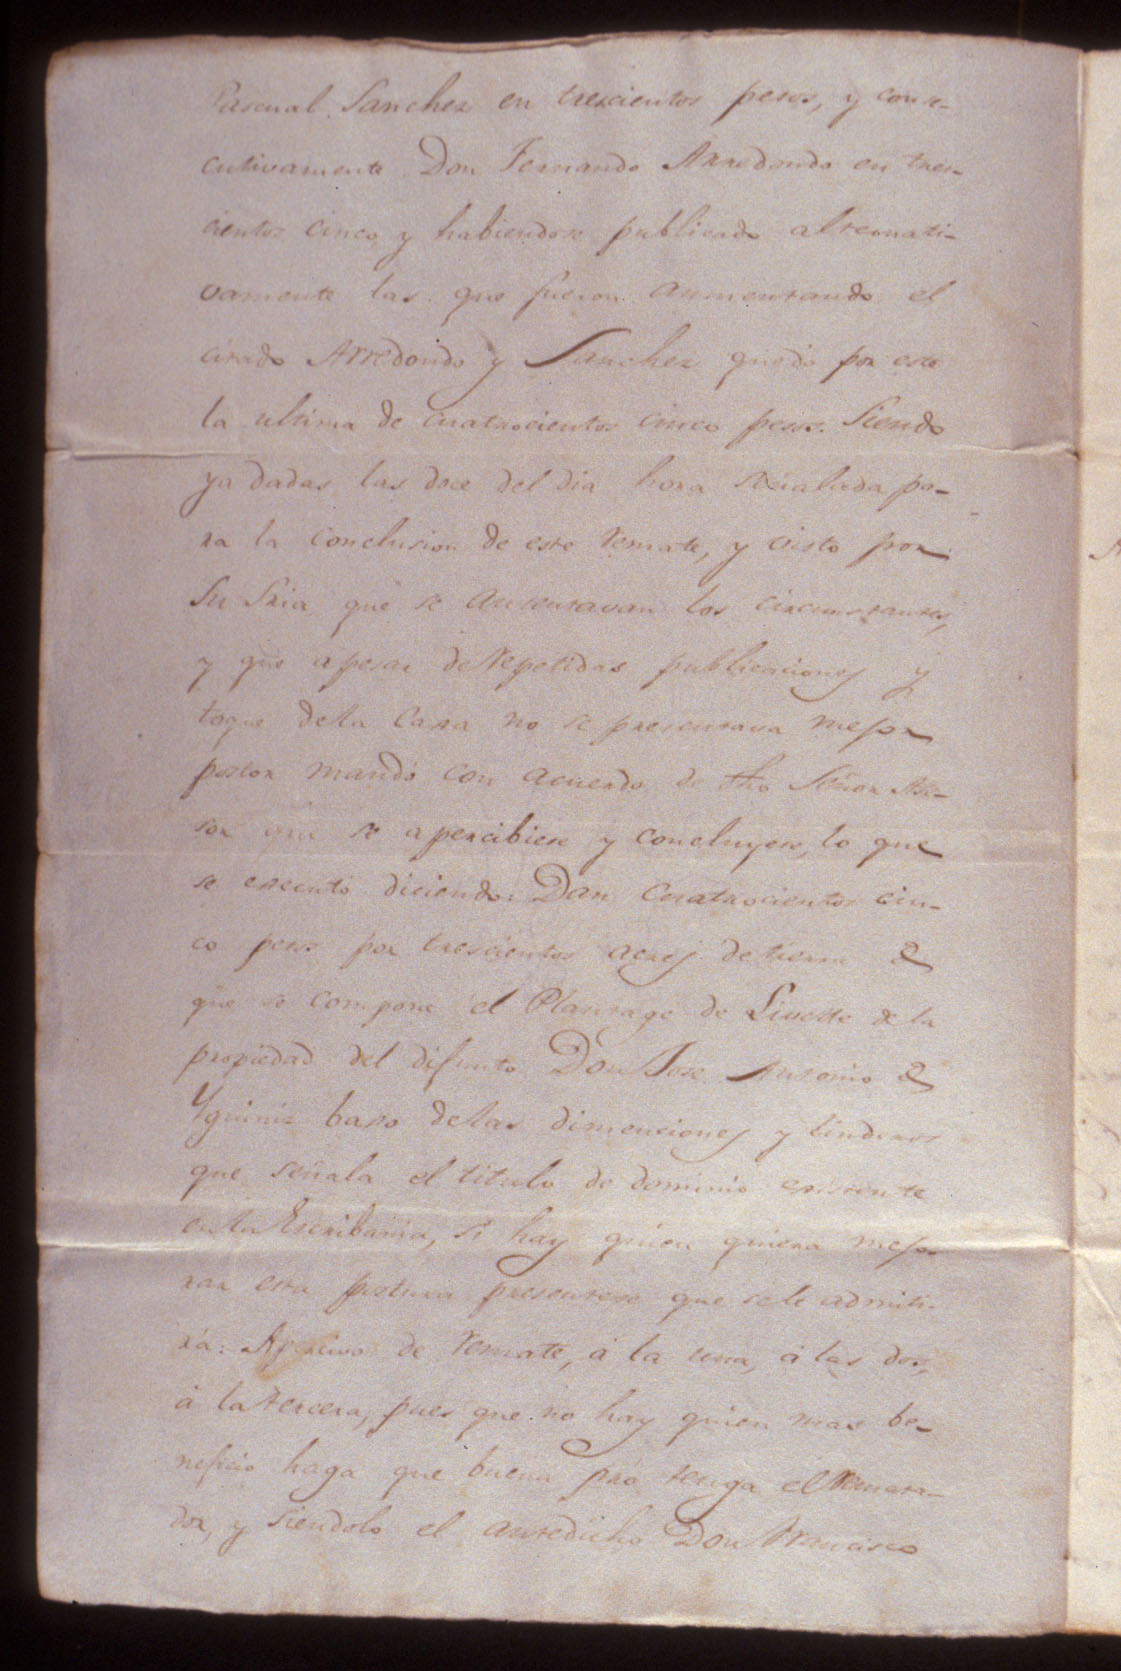 Pascual Sanchez en trescientos pesos, y conse-
cutivamente Don Fernando Arredondo en tres-
cientos cinco y habiendose publicado alternati-
vamente las que fueron aumentando el
citado Arredondo y Sanchez quedó por este
la ultima de cuatrocientos cinco pesos. Siendo
ya dadas las doce del dia hora señalada pa-
ra la conclusion de este remate, y visto por
Su Sria que se ausentavan los circunstantes,
y que apesar de repetidas publicaciones y
toque de la Caxa no se presentava mejor
postor mandó con acuerdo de dho Señor Ase-
sor que se apercibiese y concluyese, lo que
se executó diciendo: Dan Cuatrocientos cin-
co pesos por trescientos acres de tierra de
que se compone el Plantage de Livette de la
propiedad del difunto Don Jose Antonio de
Yguiniz baxo de las dimenciones y linderos
que señala el titulo de dominio existente
en la Escribania, si hay quien quiera mejo-
rar esta postura presentese que se le admiti-
rá: Apercivo de remate, á la una, á las dos,
á la tercera, pues que no hay quien mas be-
neficio haga que buena pró tenga el Remata-
dor, y siendolo el antedicho Don Francisco